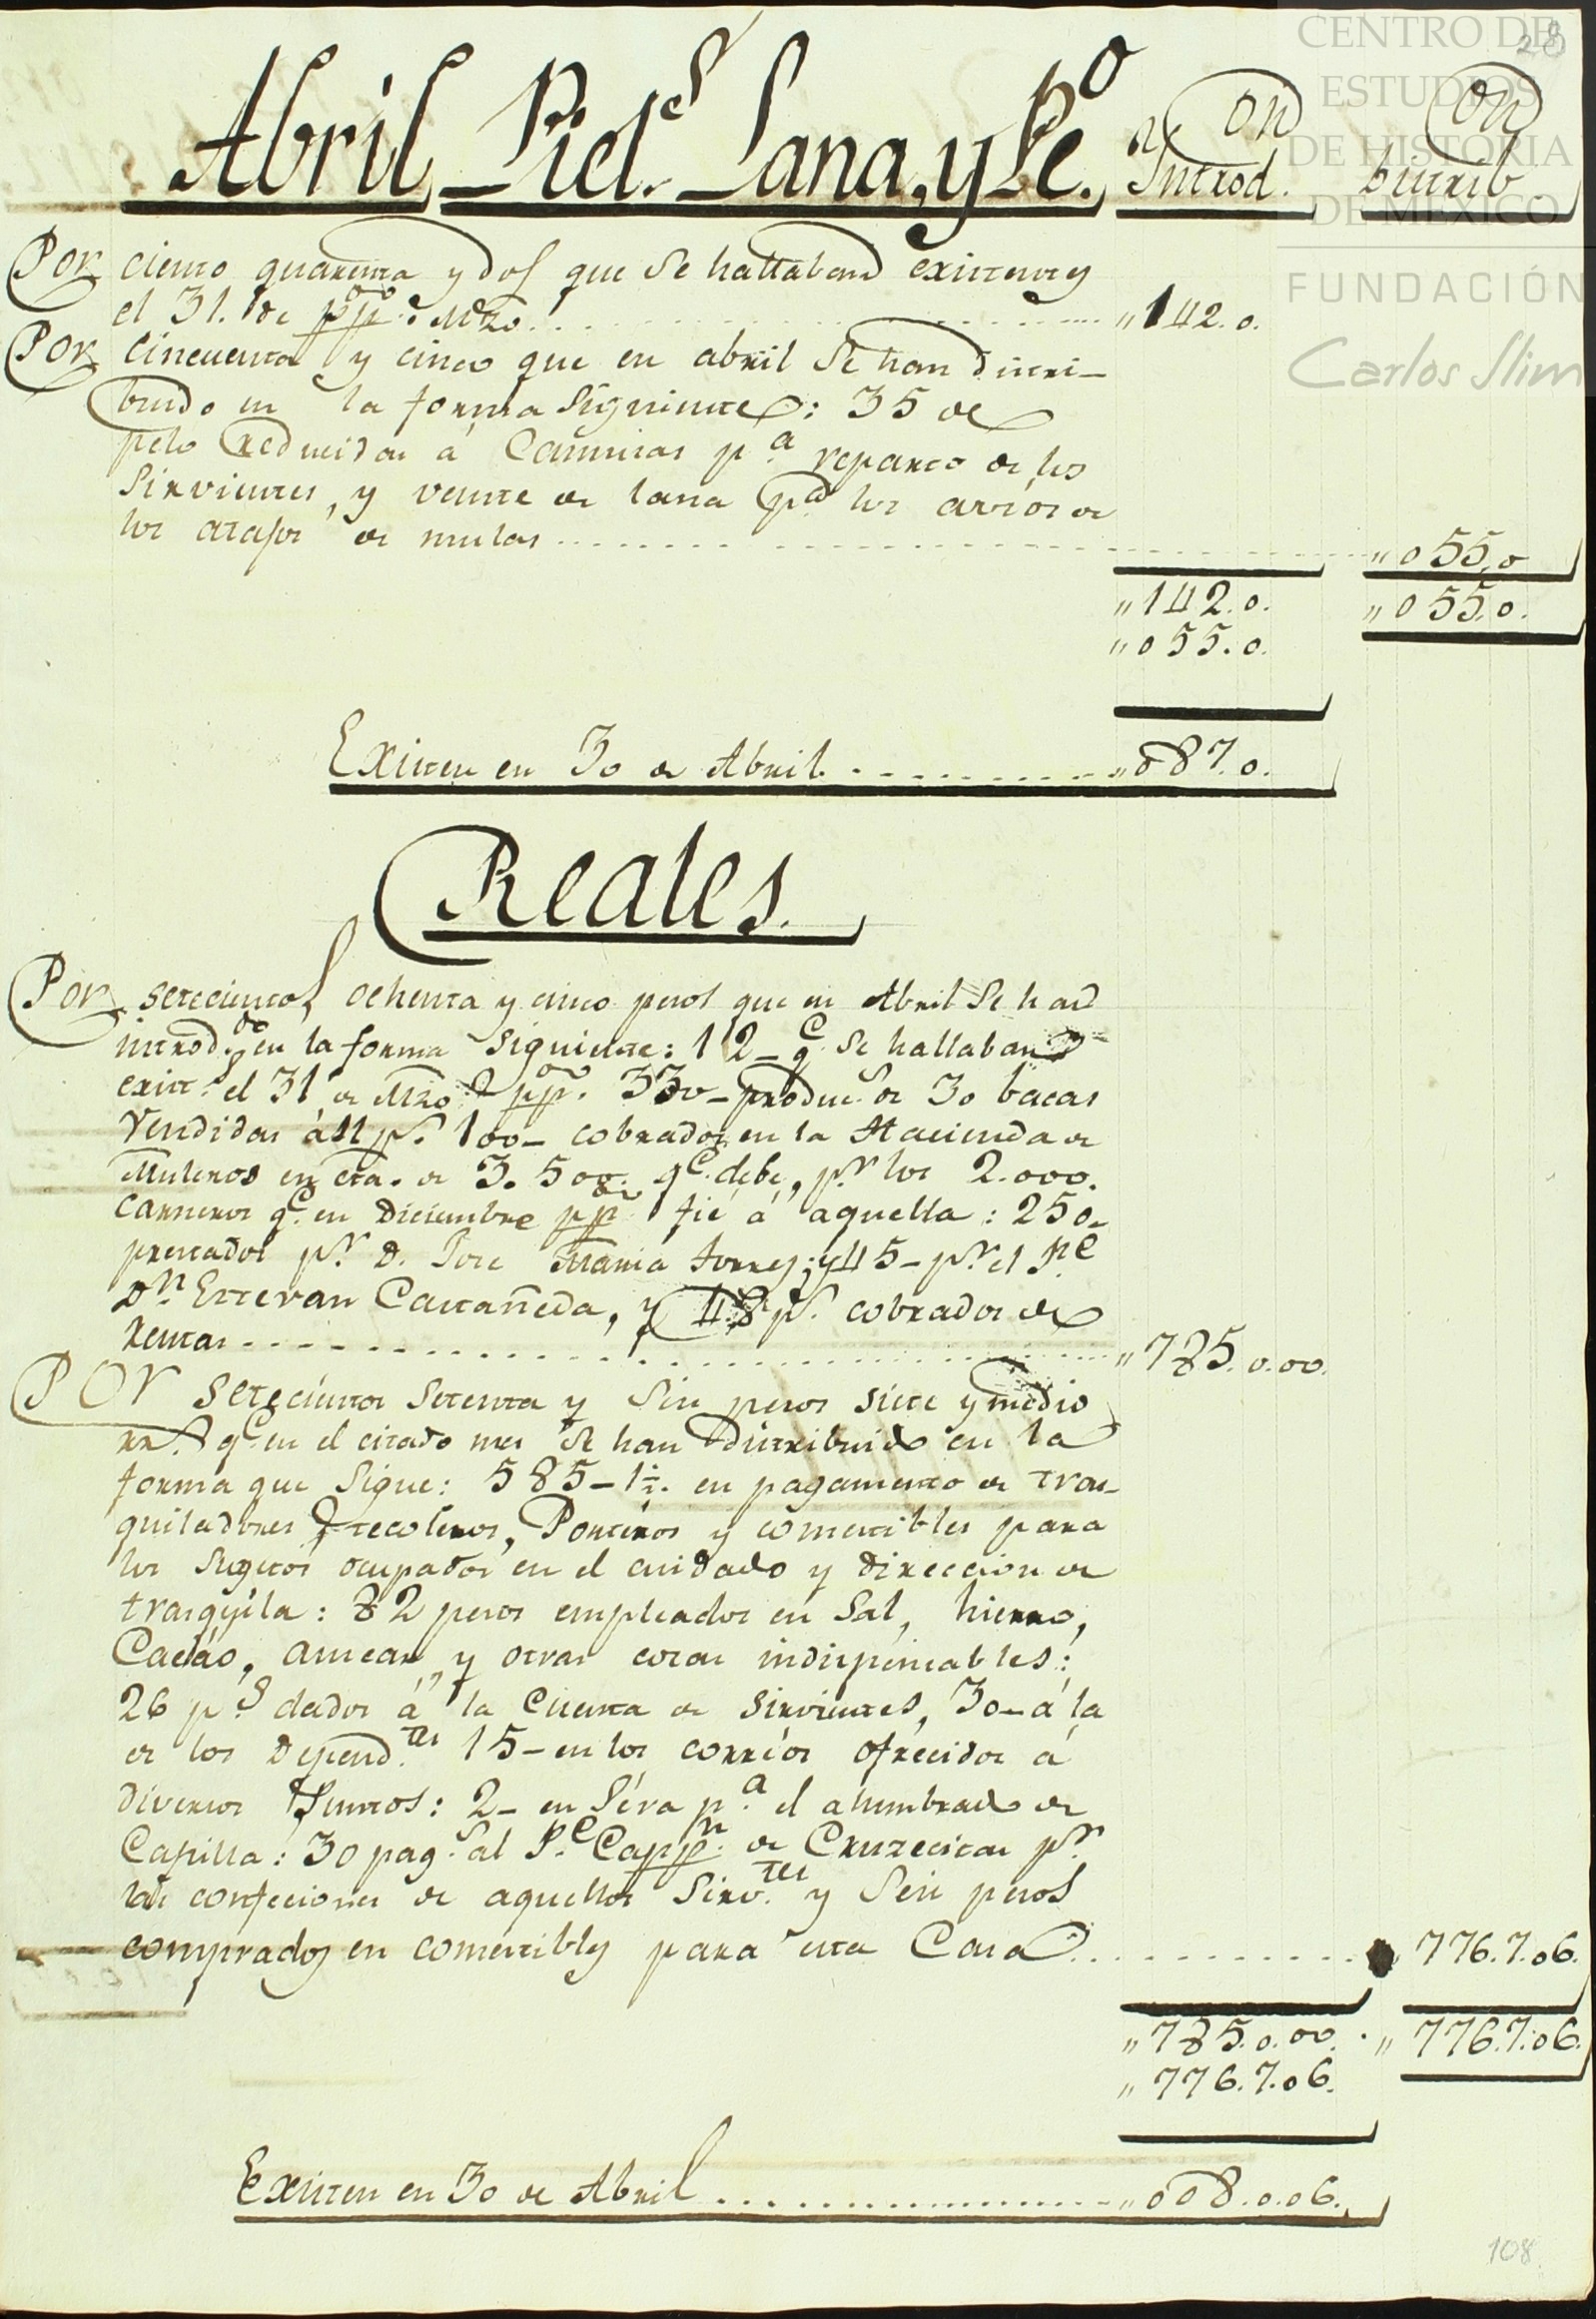 28
CENTRO DE
ESTUDIOS
DE HISTORIA
DE MEXICO
FUNDACIÓN
Carlos Slim
Abril Piel.s Lana, y Pe.o Introd.on Distrib.on
Por ciento quarenta y dos que se hallaban existentes
el 31. de pp.do Mzo. „142.0.
Por cincuenta y cinco que en abril se han distri-
buido en la forma siguiente: 35 de
pelo reducidas á Camisas p.a reparto de los
Sirvientes, y veinte de lana p.a los avios de
los atajos de mulas „055.0
„142.0. „055.0.
„055.0.
Existen en 30 de Abril. „087.0.
Reales.
Por setecientos ochenta y cinco pesos que en Abril se han
introd.do en la forma siguiente: 12_ q.e se hallaban
exist.s el 31 de Mzo. pp.do 330_ produc.s de 30 bacas
Vendidas á 11 p.s 100_ cobrados en la Hacienda de
Muleros en cta. de 3.500. q.e debe, p.r los 2.000.
carneros q.e en Diciembre pp.do fié á aquella: 250_
prestados p.r D. Jose Maria torres; y 45_ p.r el P.e
D.n Estevan Castañeda, y 48 p.s cobrados de
Rentas „785.0.00.
Por setecientos setenta y seis pesos siete y medio
rr.s q.e en el citado mes se han distribuido en la
forma que sigue: 585_1½. en pagamento de tras-
quiladores Recoteros, Porteros y comestibles para
los sugetos ocupados en el cuidado y direccion de
trasquila: 82 pesos empleados en Sal, hierro,
Cacao, asucar, y otras cosas indispensables:
26 p.s dados á la Cuenta de Sirvientes, 30_ á la
de los Depend.tes 15_ en los corrìos ofrecidos á
diversos Puntos: 2_ en Séra p.a el alumbrado de
Capilla: 30 pag.s al P.e Capp.n de Cruzecitas p.r
las confeciones de aquellos Sirv.tes y Seis pesos
comprados en comestibles para esta Casa 776.7.06.
„785.0.00. „776.7.06.
„776.7.06.
Existen en 30 de Abril „008.0.06.
108